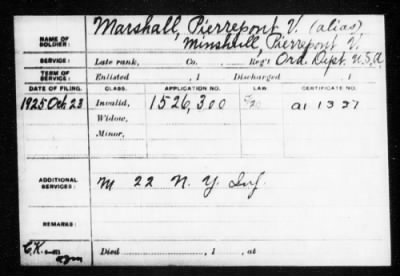 Marshall, Pierrepont V. (alias)
NAME OF SOLDIER: Minshull, Pierrepont V.
SERVICE: Late rank, Co. Reg't Ord. Dept. U.S.A.
TERM OF SERVICE: Enlisted , 1 Discharged , 1
DATE OF FILING. CLASS. APPLICATION NO. LAW. CERTIFICATE NO.
1925 Oct 23 Invalid, 1526,300
Widow,
Minor,
ADDITIONAL SERVICES: M 22 N. Y. Inf.
REMARKS:
Died , 1 , at